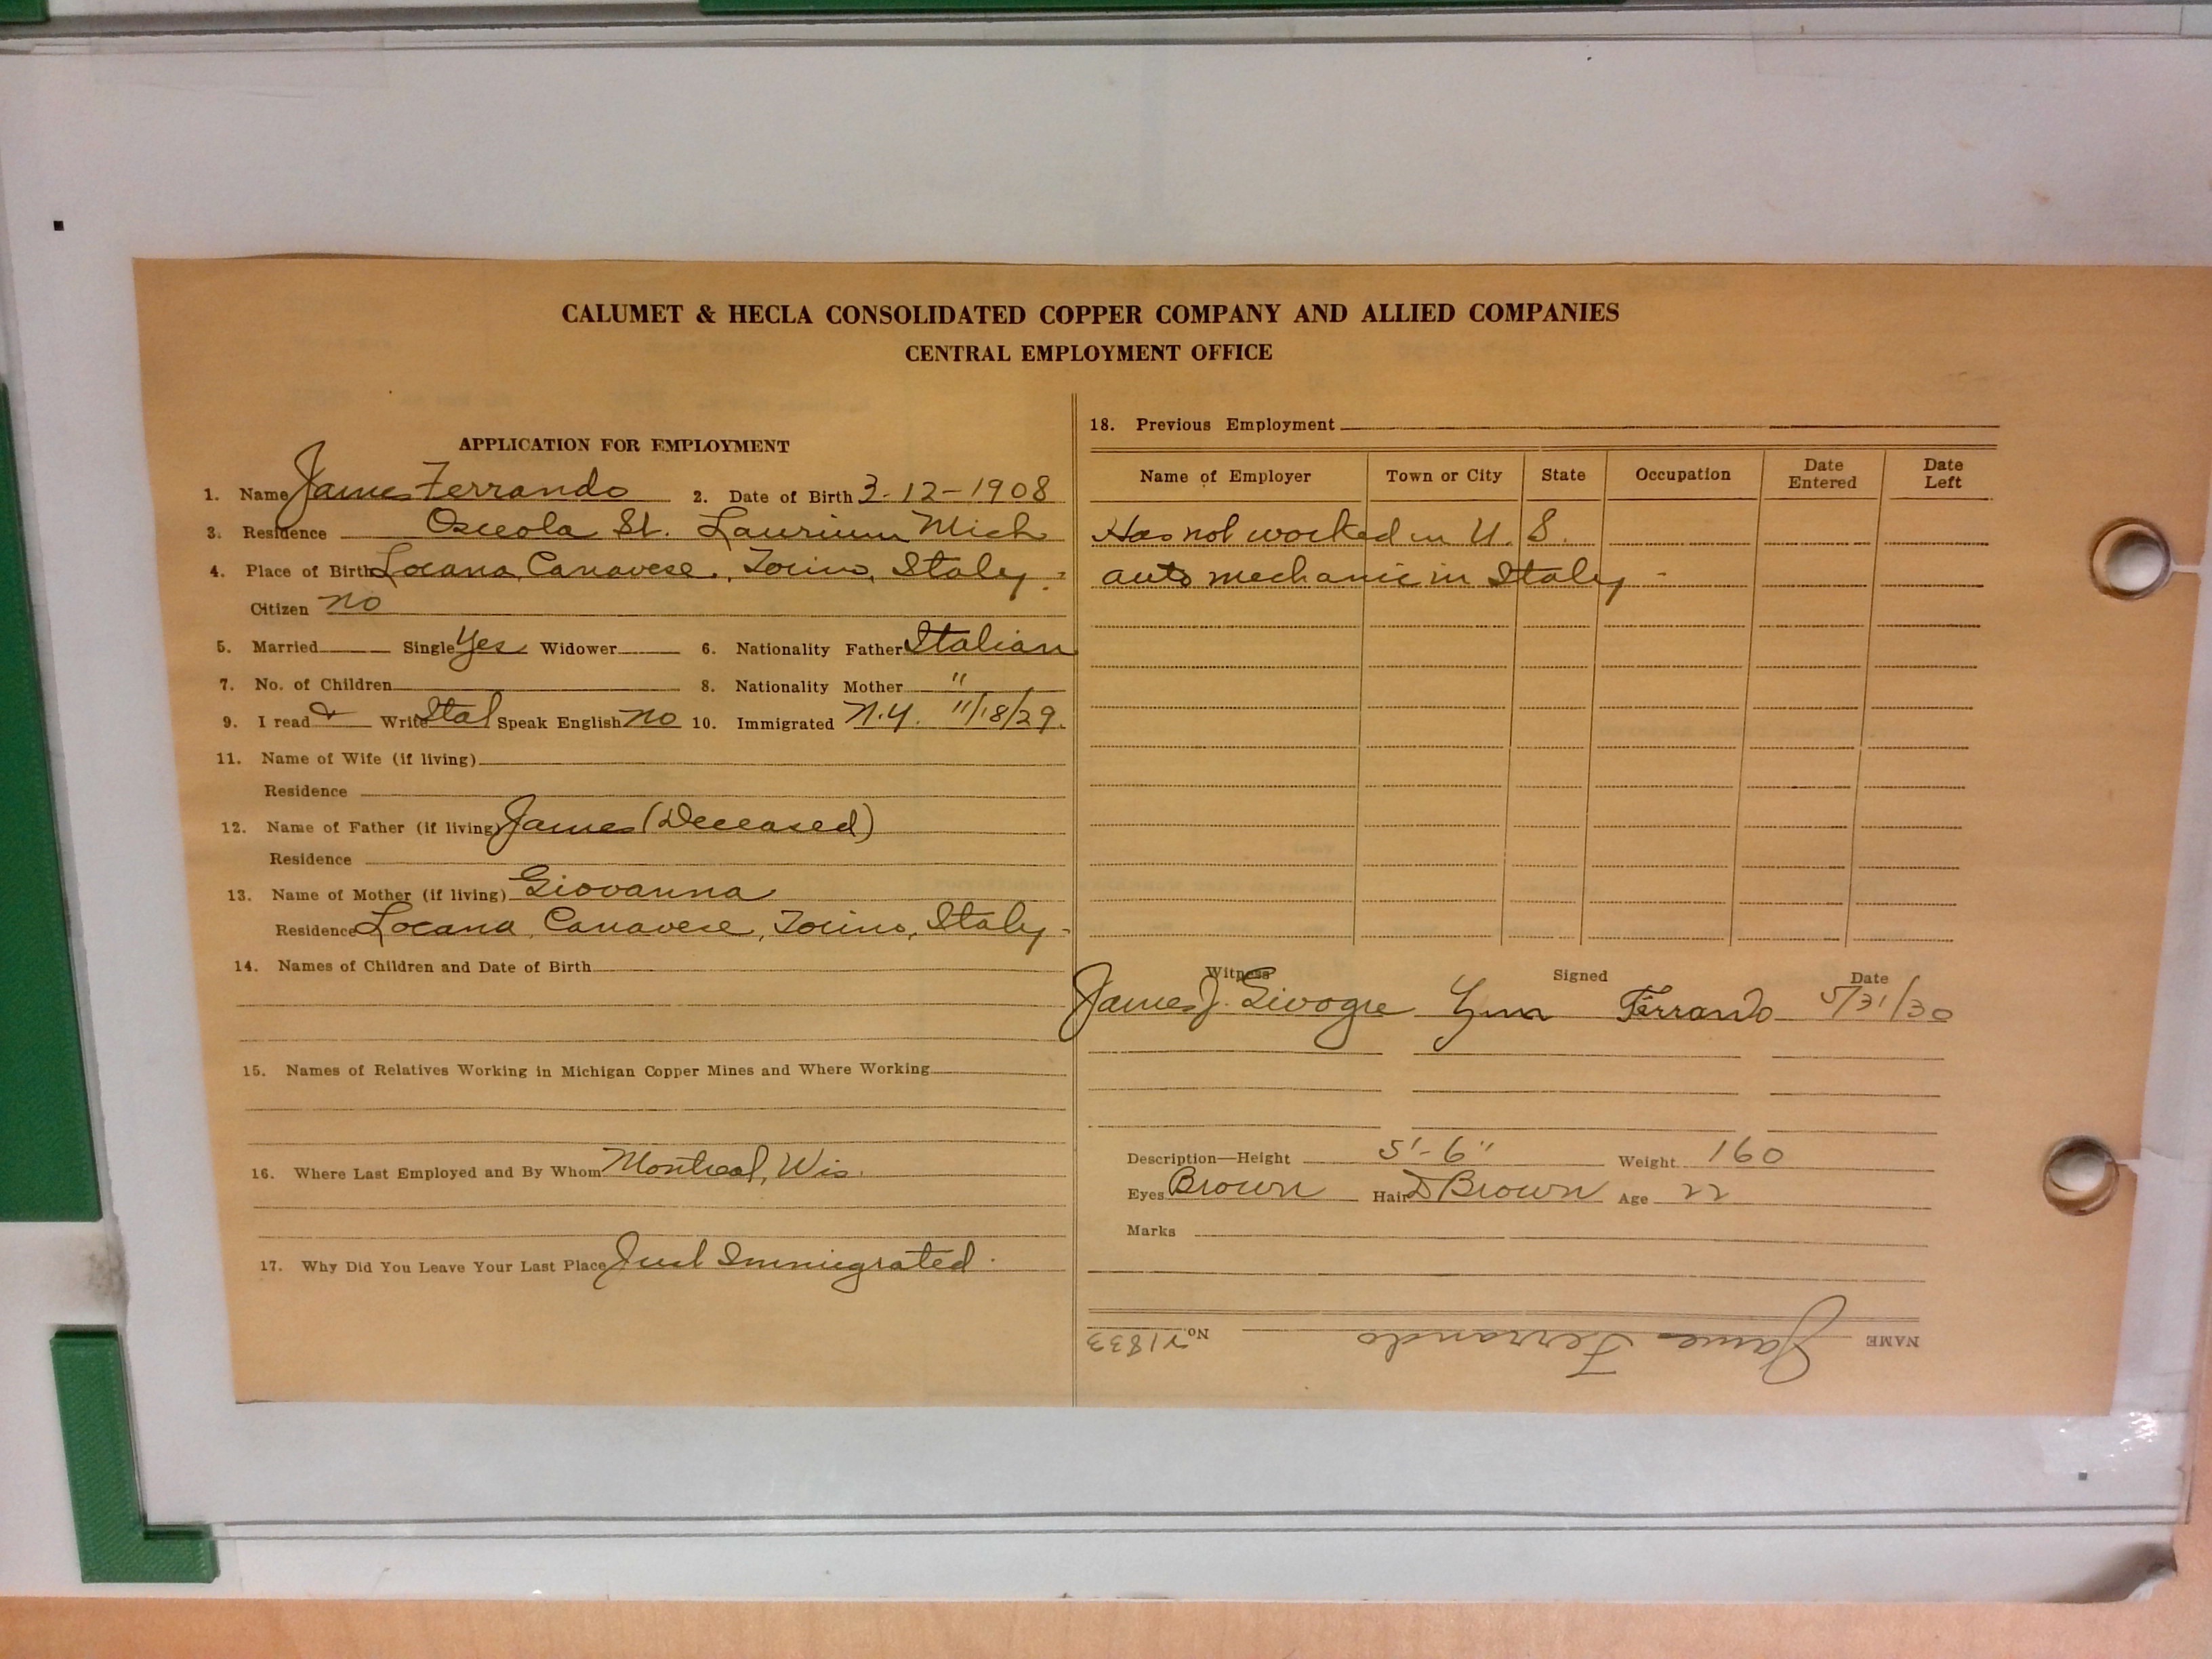 CALUMET & HECLA CONSOLIDATED COPPER COMPANY AND ALLIED COMPANIES
CENTRAL EMPLOYMENT OFFICE
APPLICATION FOR EMPLOYMENT
1. Name James Ferrando 2. Date of Birth 3-12-1908
3. Residence Osceola St. Laurium Mich
4. Place of Birth Locana, Canavese, Torino, Italy.
Citizen no
5. Married Single Yes Widower 6. Nationality Father Italian
7. No. of Children 8. Nationality Mother "
9. I read & Write Ital Speak English no 10. Immigrated N.Y. 11/18/29.
11. Name of Wife (if living)
Residence
12. Name of Father (if living) James (Deceased)
Residence
13. Name of Mother (if living) Giovanna
Residence Locana, Canavese, Torino, Italy-
14. Names of Children and Date of Birth
15. Names of Relatives Working in Michigan Copper Mines and Where Working
16. Where Last Employed and By Whom Montreal, Wis.
17. Why Did You Leave Your Last Place Just Immigrated.
18. Previous Employment
Name of Employer Town or City State Occupation Date Entered Date Left
Has not worked in U.S.
auto mechanic in Italy -
Witness Signed Date
James J. Ferrando 5/31/30
Description—Height 5'-6" Weight 160
Eyes Brown Hair D Brown Age 22
Marks
NAME James Ferrando No. 71833